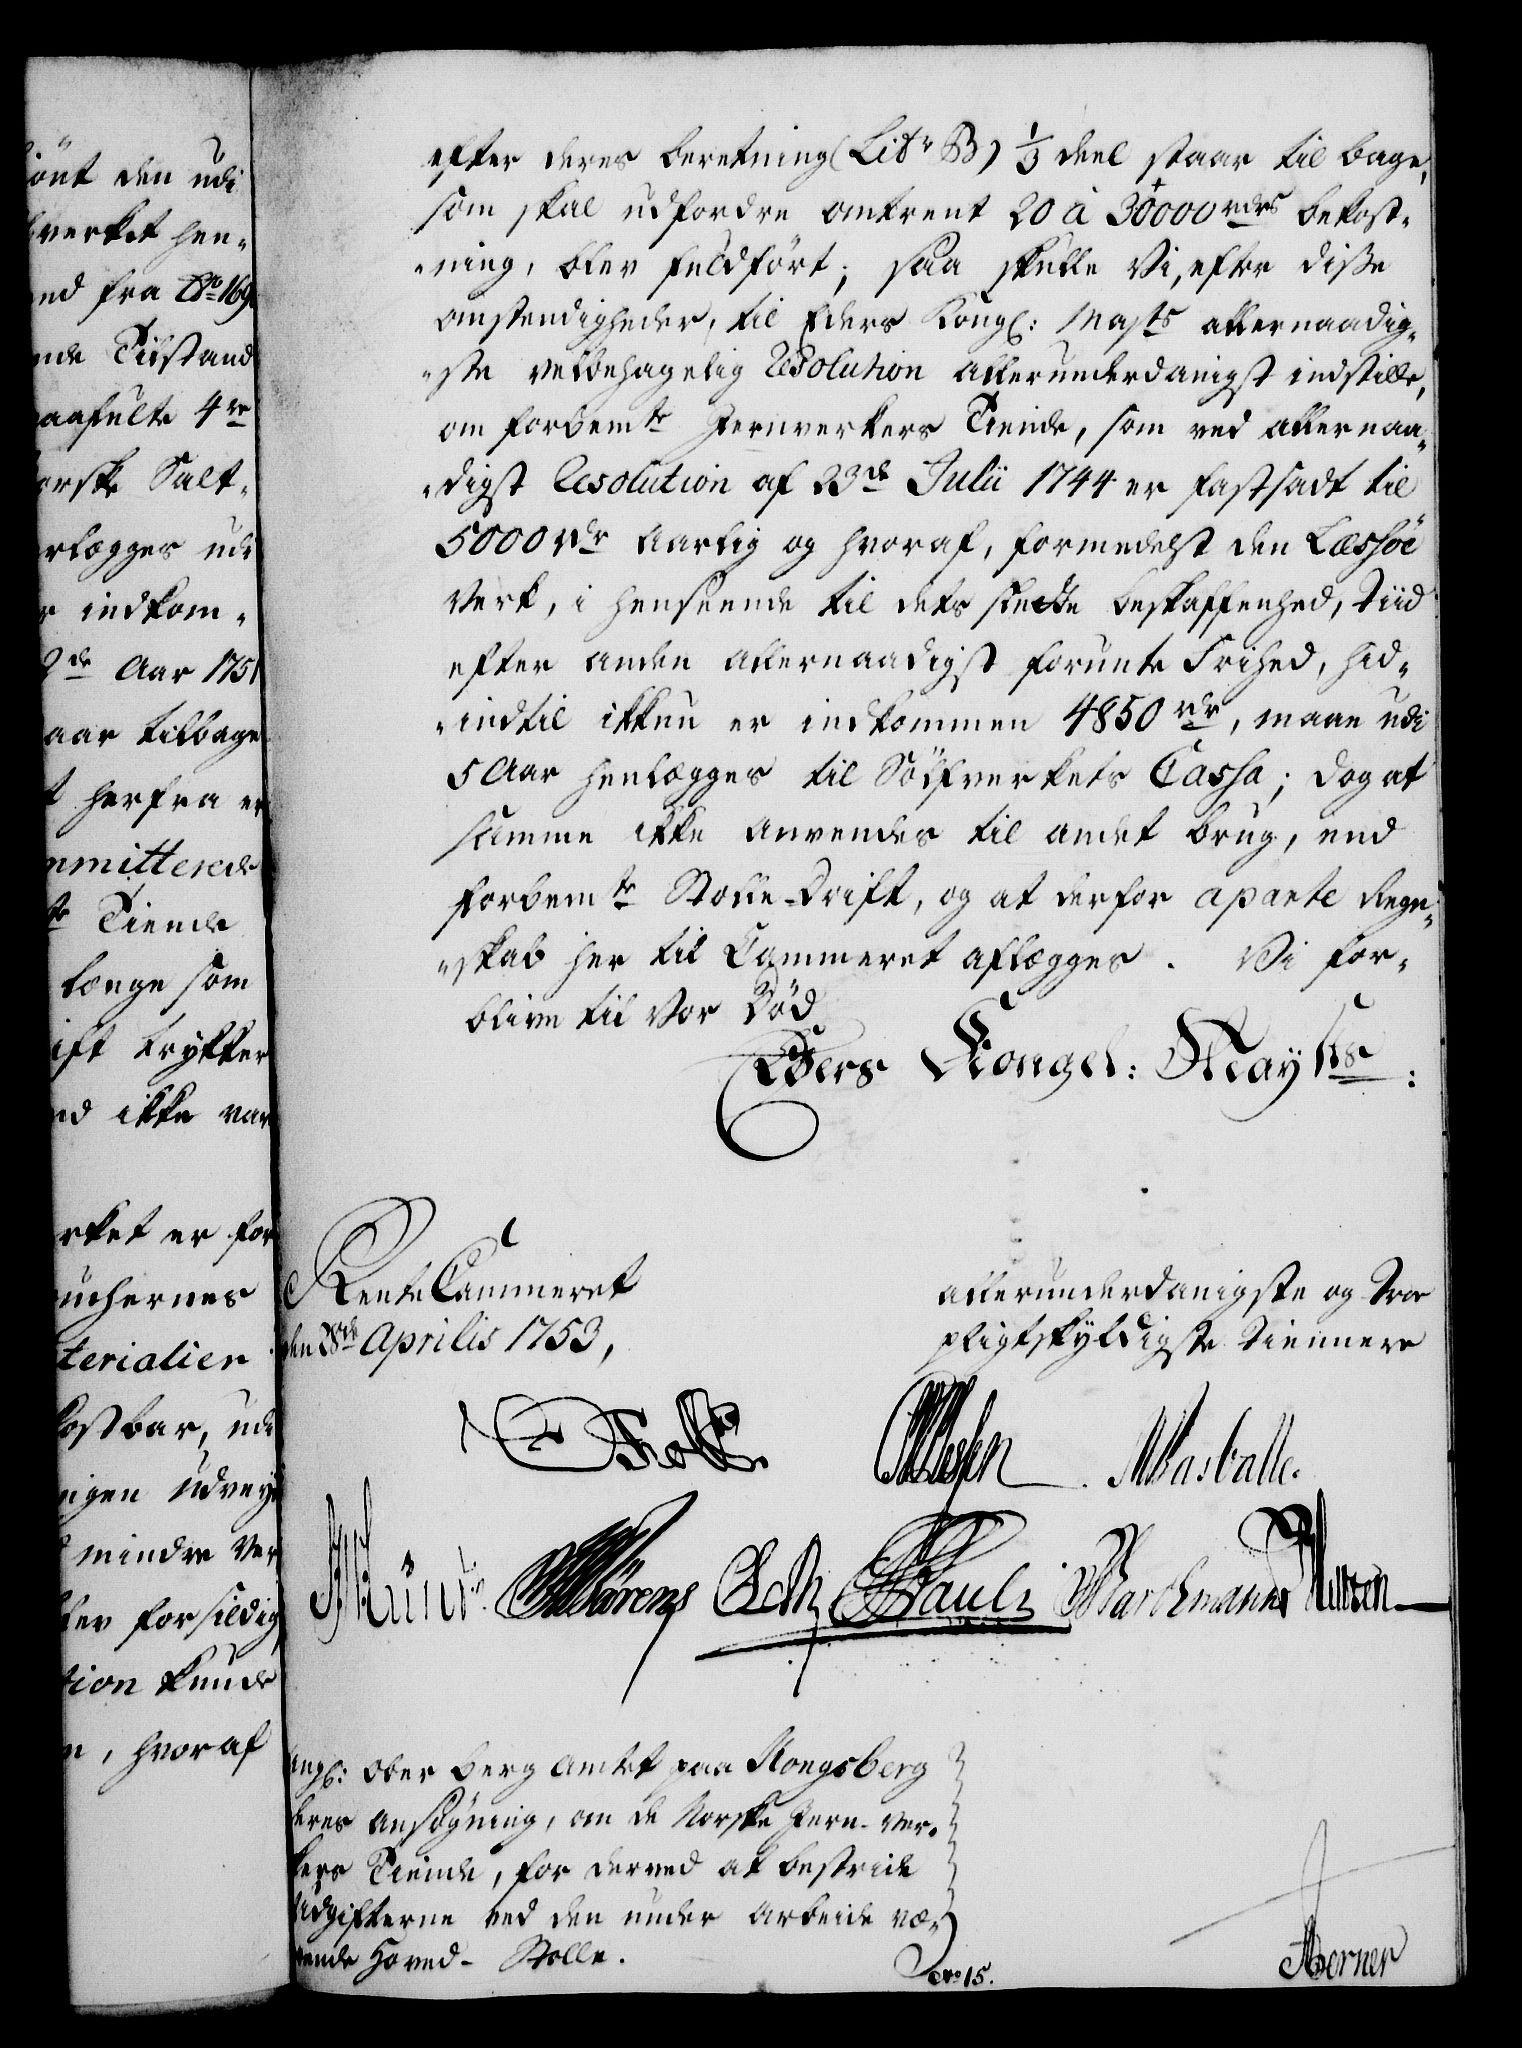 iönt den udi
verket hen-
end fra Ao 169
ende Tilstand
paafulte 4re
orske Salt-
rlægges udi
r indkom-
2de Aar 1751
aar tilbage
t herfra er
mmitterede
te Tiende
længe som
ift trykker
nd ikke var
rket er for
uchernes
terialier
kostbar, udi
nigen udveye
mindre Ver
blev forsildig
tion kunde
n, hvoraf
efter deres beretning (Litr B) 1/3 deel staar til bage,
som skal udfordre omtrent 20 à 30000 rdrs bekost-
-ning, blev fuldfört; saa skulle Vi, efter diße
omstendigheder, til Eders Kongl: Mayts allernaadig-
-ste velbehagelig Resolution allerunderdanigst indstille,
om forbemte Jernverkers Tiende, som ved allernaa-
-digst Resolution af 23de Julii 1744 er fastsadt til
5000 rdr aarlig og hvoraf, formedelst den Læssöe
Verk, i henseende til dets slette beskaffenhed, Tiid
efter anden allernaadigst forunte Frihed, hid-
-indtil ikkun er indkommen 4850 rdr, maae udi
5 Aar henlægges til Sölfverkets Cassa; dog at
samme ikke anvendes til andet brug, end
forbemte Stolle-Drift, og at derfor aparte Regn-
-skab her til Cammeret aflægges. Vi for-
blive til Vor Död
Eders Kongel: Mayts:
Rente Cammeret
den 28de Aprilis 1753,
allerunderdanigste og Troe
pligtskyldigste Tienere
Holt
Basballe.
Pauli
ongl: Ober Berg Amtet paa Kongsberg
deres Ansögning, om de Norske Jern-Ver-
kers Tiende, for derved at bestride
Udgifterne ved den under Arbeide væ-
rende Hoved-Stolle.
No 15.
Hoerner